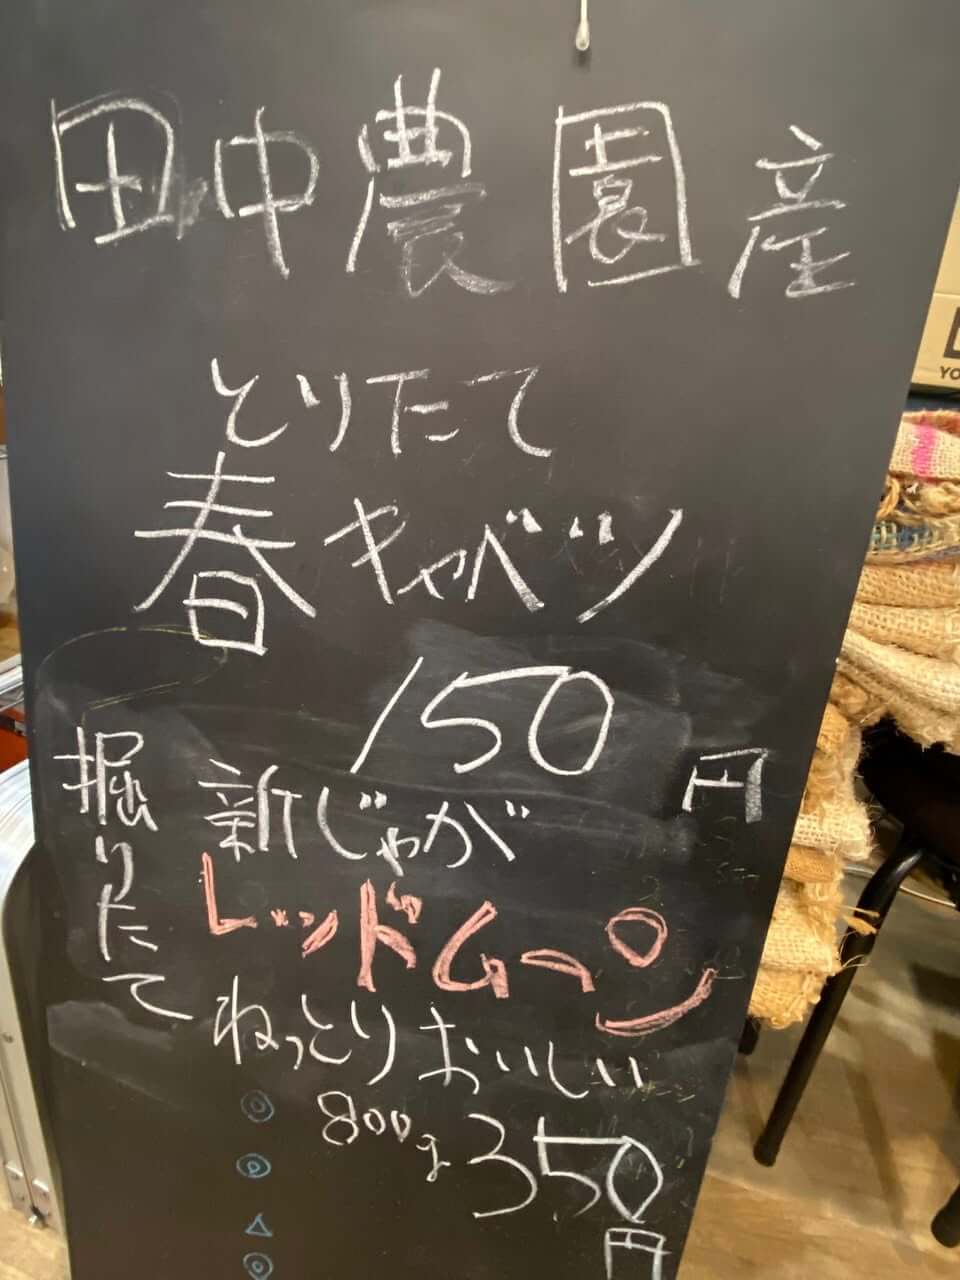 田中農園産
とりたて
春キャベツ
150円
掘りたて
新じゃが
レッドムーン
ねっとりおいしい
800g 350円
◎
◎
△
◎
YO